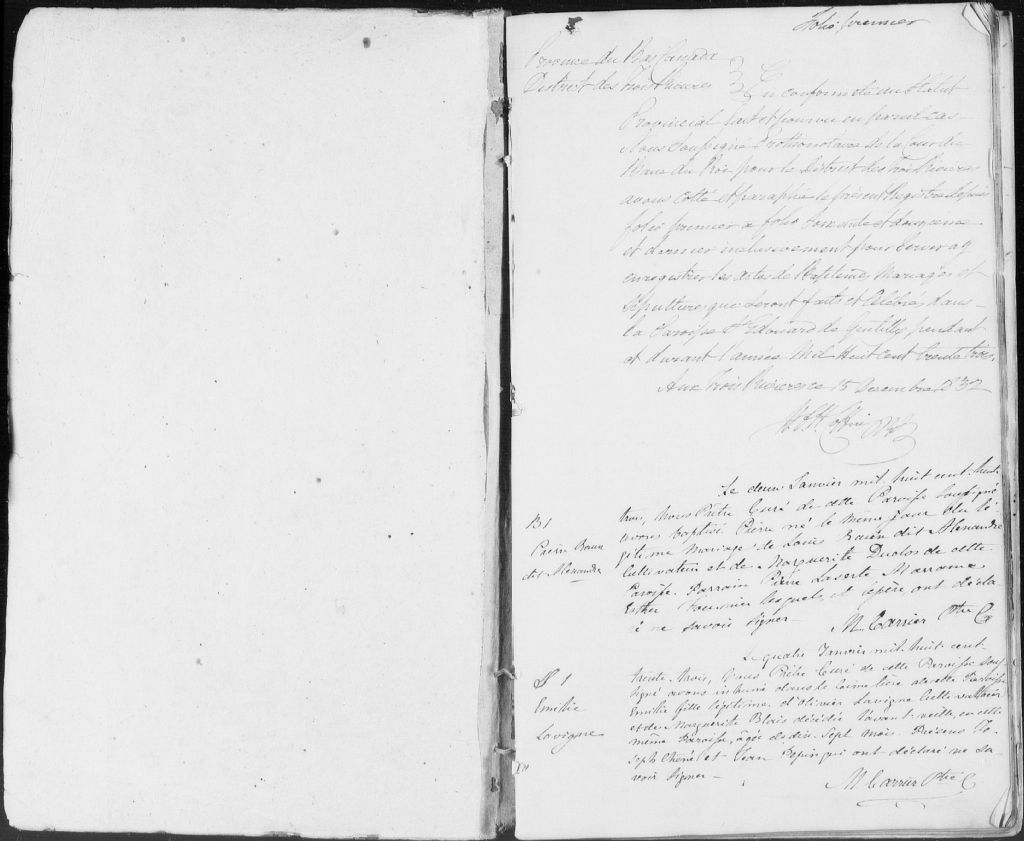 Folio premier
Province du Bas Canada
District des Trois Rivieres } En conformité du Statut
Provincial fait et pourvu en pareil cas
Nous Soussigné Prothonotaire de la Cour du
Banc du Roi pour le District des Trois Rivieres
avons Cotté et paraphé le présent Registre depuis
folio premier a folio Soixante et douzieme
et dernier inclusivement pour Servir a y
enregistrer les Actes de Baptêmes Mariages et
Sépultures que Seront faits et Célébrés dans
la Paroisse St Edouard de Gentilly pendant
et durant l'année Mil Huit Cent trente trois.
Aux Trois Rivieres ce 15 Decembre 1832
Le deux Janvier mil-huit cent-trente
trois, Nous Prêtre Curé de cette Paroisse soussigné
B1
avons baptisé Pierre né le même jour du lé
Pierre
gitime Mariage de Louis dit Alexandre
dit Alexandre
Cultivateur et de Marguerite Duclos de cette
Paroisse. Parrain Pierre Laserte Marraine
Esther Fournier lesquels et le père, ont décla
ré ne savoir signer-
M Carrier Ptre C
Le quatre Janvier mil-huit cent-
trente-trois, Nous Prêtre Curé de cette Paroisse sous
S 1
signé avons inhumé dans le Cimetière de cette Paroisse
Emilie
Emilie fille légitime d'Olivier Lavigne Cultivateur
Lavigne
et de Marguerite Blais décédée l'avant-veille, en cette
même Paroisse, âgée de dix-sept mois. Présens Jo
seph Chêné et Jean Pepin qui ont-déclaré ne sa
voir signer-
M Carrier Ptre C